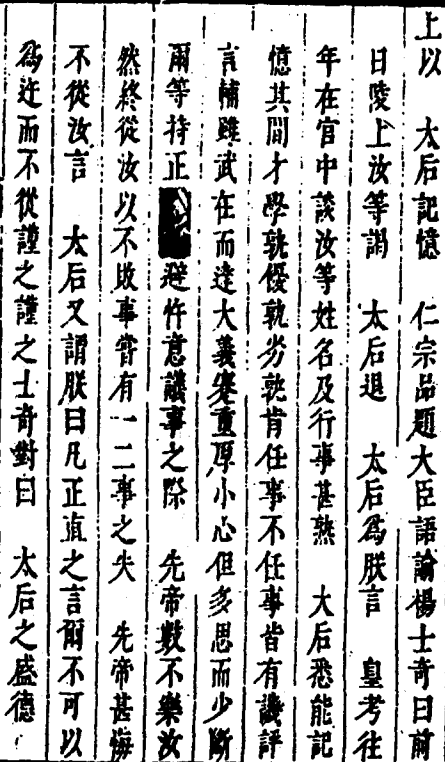 上以　太后記憶　仁宗品題大臣語諭楊士奇曰前
日陵上汝等謁　太后退　太后為朕言　皇考往
年在宮中談汝等姓名及行事甚熟　太后悉能記
憶其間才學孰優孰劣孰肯任事不任事皆有譏評
言輔雖武在而達大義蹇重厚小心但多思而少斷
爾等持正　避忤意議事之際　先帝數不樂汝
然終從汝以不敗事嘗有一二事之失　先帝甚悔
不從汝言　太后又謂朕曰凡正直之言爾不可以
為迕而不從謹之謹之士奇對曰　太后之盛德